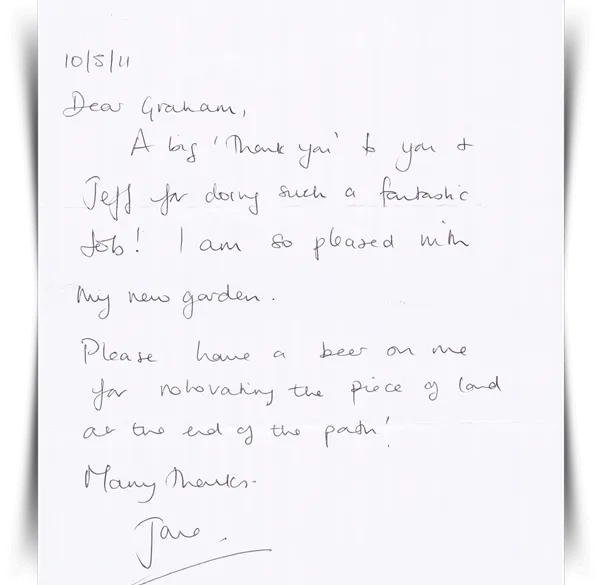 10/5/11
Dear Graham,
A big 'Thank you' to you +
Jeff for doing such a fantastic
Job! I am so pleased with
my new garden.
Please have a beer on me
for rotovating the piece of land
at the end of the path!
Many Thanks.
Jane.